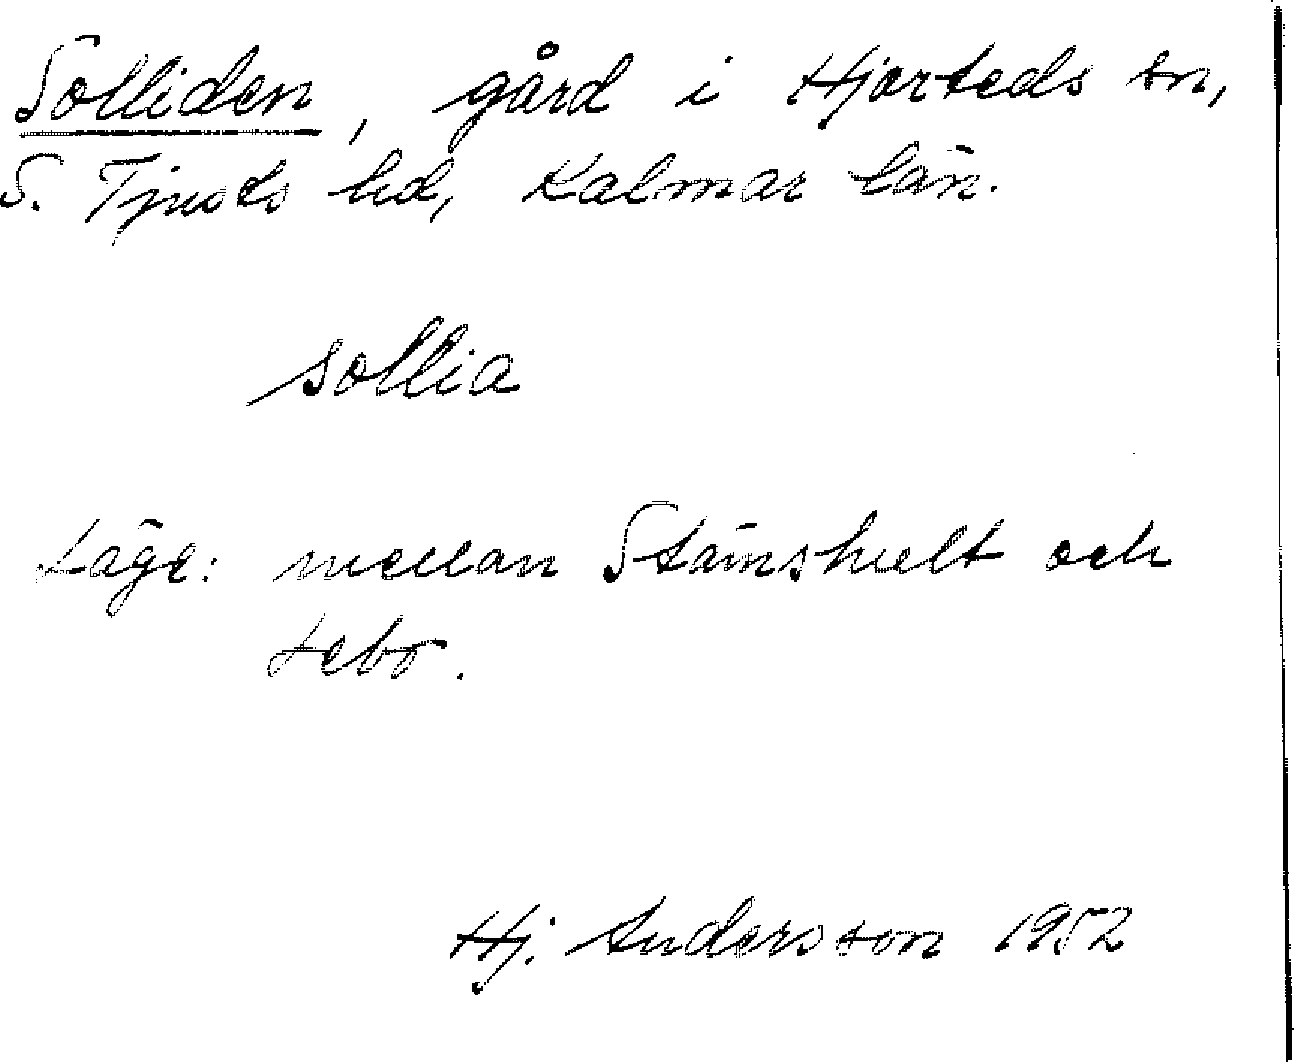 Solliden, gård i Hjorteds sn,
S. Tjusts hd, Kalmar län.
sollia
Läge: mellan Stämshult och
Lebo.
Hj. Andersson 1952